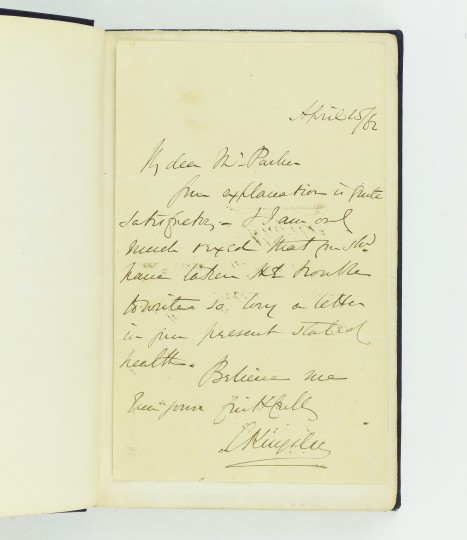 April 15/62
My dear Mr. Parker
Your explanation is quite
satisfactory - & I am only
much vexed that you shd.
have taken the trouble
to write so long a letter
in your present state of
health.
Believe me
Ever yours faithfully
C Kingsley